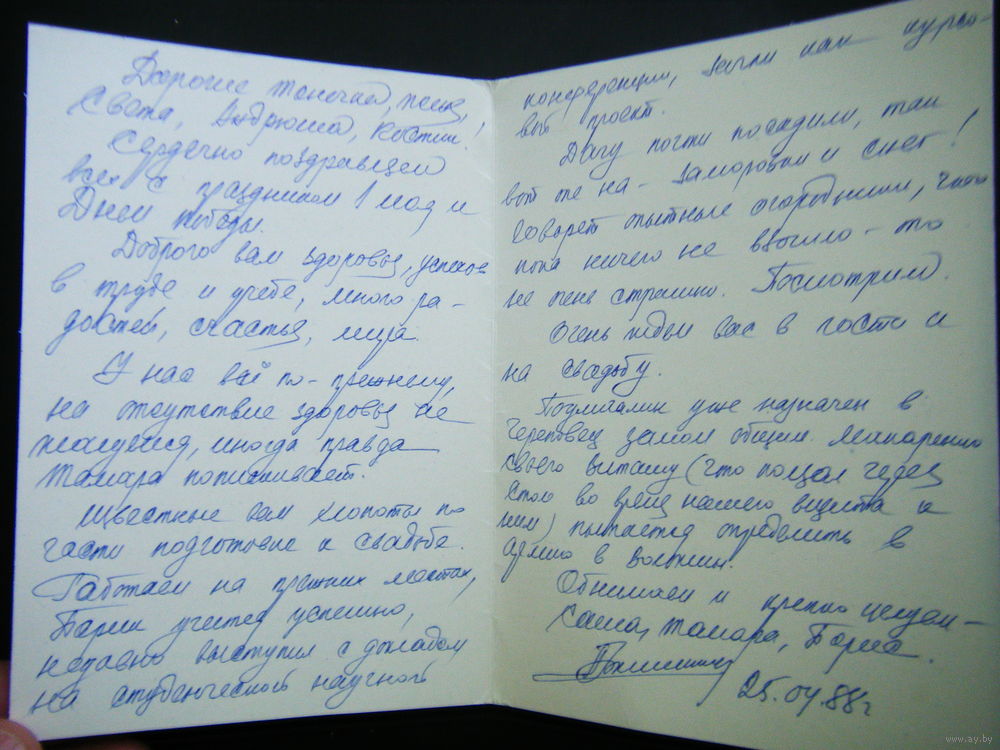 Дорогие Танечка, Женя,
Света, Андрюша, Костик!
Сердечно поздравляем
всех с праздником 1 мая и
Днем Победы.
Доброго вам здоровья, успехов
в труде и учебе, много ра-
достей, счастья, мира.
У нас всё по-прежнему,
на отсутствие здоровья не
жалуемся, иногда правда
Тамара попискивает.
Известные вам хлопоты по
части подготовке к свадьбе.
Работаем на прежних местах,
Борис учится успешно,
недавно выступил с докладом
на студенческой научной
конференции, зачли как курсо-
вой проект.
Дачу почти посадили, так
вот те на - заморозки и снег!
Говорят опытные огородники, что
пока ничего не взошло - то
не очень страшно. Посмотрим.
Очень ждем вас в гости и
на свадьбу.
уже назначен в
Череповец замом общим. Макаренко
своего Виташу (что ползал через
стол во время нашего визита к
ним) пытается определить в
армию в
Обнимаем и крепко целуем -
Саша, Тамара, Борис.
25.04.88 г
www.ay.by